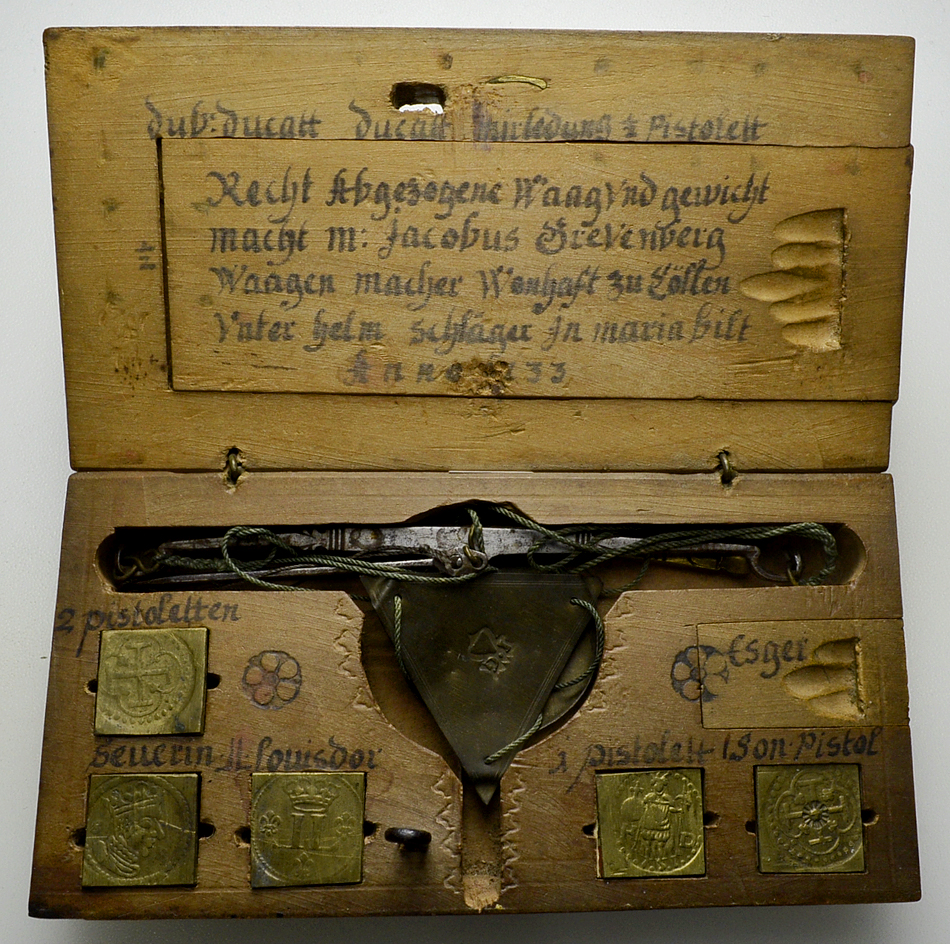 dub: ducatt ducatt ½ Pistolett
Recht Abgezogene Waag Vnd gewicht
macht m: Jacobus Grevenberg
Waagen macher Wonhaft zu Cöllen
Vnter helm schläger Jn maria bilt
Anno 33
2 pistoletten
Esger
Severin Louisdor
1 pistolett 1 Son Pistol